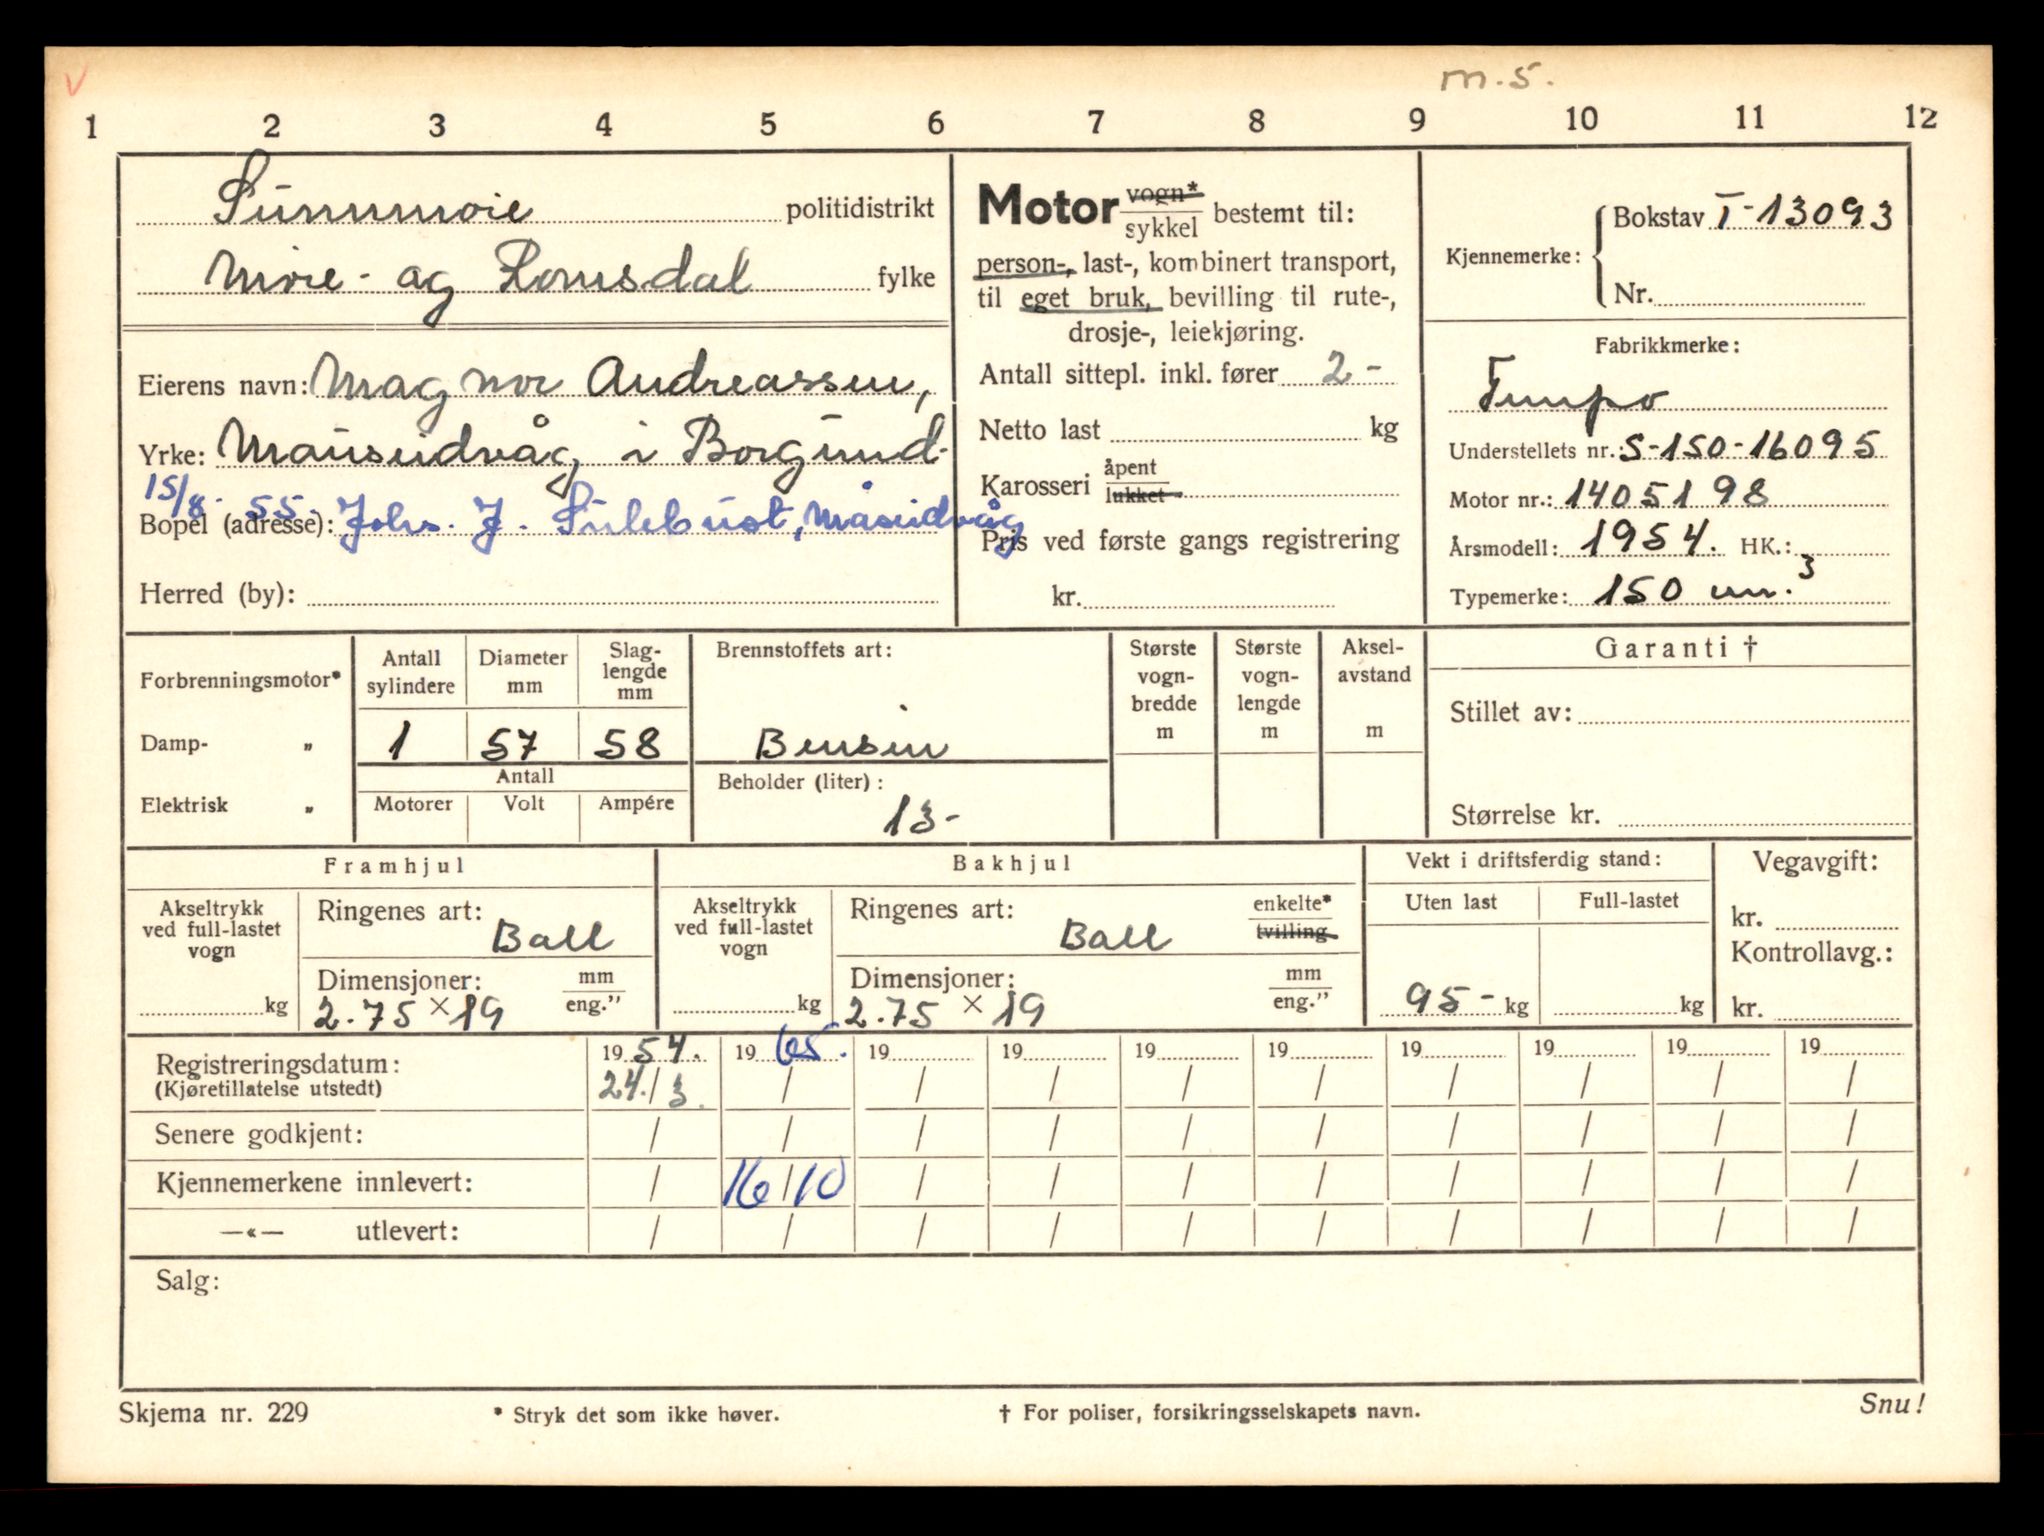 V
m.5.
1 2 3 4 5 6 7 8 9 10 11 12
Sunnmøre politidistrikt
Møre- og Romsdal fylke
Eierens navn: Magnor Andreassen,
Yrke: Mauseidvåg i Borgund
15/8. 55.
Bopel (adresse): Johs. J. Sulebust, Måseidvåg
Herred (by):
Motor vogn*
sykkel bestemt til:
person-, last-, kombinert transport,
til eget bruk, bevilling til rute-,
drosje-, leiekjøring.
Antall sittepl. inkl. fører 2-
Netto last kg
Karosseri åpent
lukket
Pris ved første gangs registrering
kr.
Kjennemerke: Bokstav T-13093
Nr.
Fabrikkmerke:
Tempo
Understellets nr.: S-150-16095
Motor nr.: 1405198
Årsmodell: 1954. HK.:
Typemerke: 150 cm.³
Forbrenningsmotor*
Damp- „
Elektrisk „
Antall sylindere
Diameter mm
Slag-
lengde
mm
1 57 58
Antall
Motorer Volt Ampére
Brennstoffets art:
Bensin
Beholder (liter):
13-
Største
vogn-
bredde
m
Største
vogn-
lengde
m
Aksel-
avstand
m
Garanti †
Stillet av:
Størrelse kr.
Framhjul
Akseltrykk
ved full-lastet
vogn
kg
Ringenes art:
Ball
Dimensjoner: mm
2.75 × 19 eng.”
Bakhjul
Akseltrykk
ved full-lastet
vogn
kg
Ringenes art: enkelte*
Ball tvilling
Dimensjoner: mm
2.75 × 19 eng.”
Vekt i driftsferdig stand:
Uten last Full-lastet
95- kg kg
Vegavgift:
kr.
Kontrollavg.:
kr.
Registreringsdatum: 1954. 1965. 19 19 19 19 19 19 19 19
(Kjøretillatelse utstedt) 24./3. / / / / / / / / /
Senere godkjent: / / / / / / / / / /
Kjennemerkene innlevert: / 16/10 / / / / / / / /
—«— utlevert: / / / / / / / / / /
Salg:
Skjema nr. 229 * Stryk det som ikke høver. † For poliser, forsikringsselskapets navn. Snu!